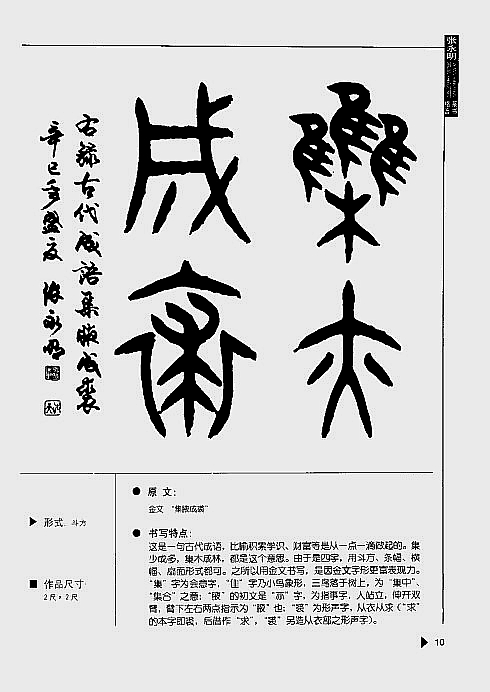 张永明
集亦
成裘
右录古代成语集腋成裘
辛巳年盛夏 张永明
▶ 形式: 斗方
■ 作品尺寸:
2尺×2尺
● 原文:
金文 “集腋成裘”
● 书写特点:
这是一句古代成语，比喻积累学识、财富等是从一点一滴做起的。集
少成多，集木成林，都是这个意思。由于是四字，用斗方、条幅、横
幅、扇面形式都可。之所以用金文书写，是因金文字形更富表现力。
“集”字为会意字，“隹”字乃小鸟象形，三鸟落于树上，为“集中”、
“集合”之意；“腋”的初文是“亦”字，为指事字，人站立，伸开双
臂，臂下左右两点指示为“腋”也；“裘”为形声字，从衣从求（“求”
的本字即裘，后借作“求”，“裘”另造从衣部之形声字）。
▶ 10